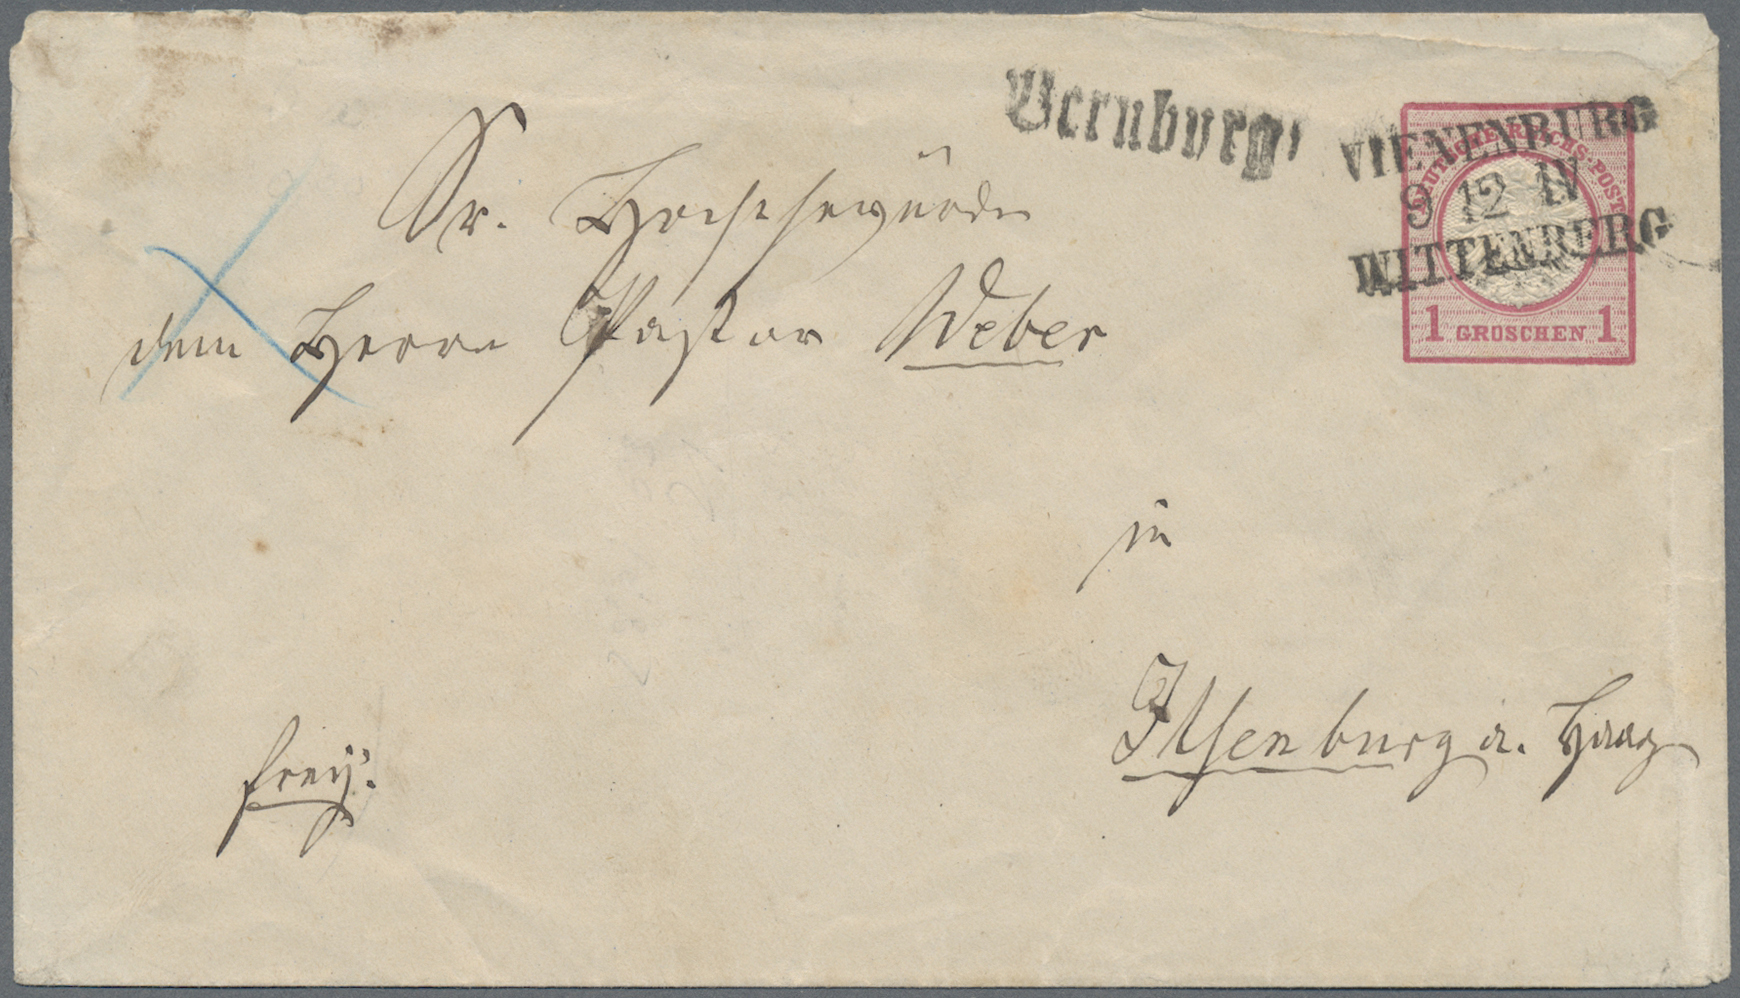 Bernburg
VIENENBURG
9 12 IV
WITTENBERG
DEUTSCHE REICHS-POST
1 GROSCHEN 1
Sr. Hochehrwürden
dem Herrn Pastor Weber
in
Ilsenburg a. Harz
frey.